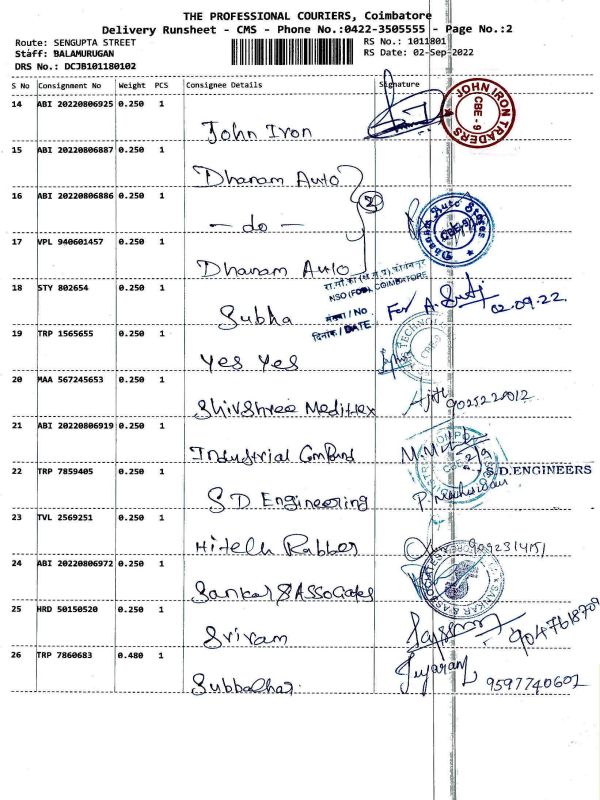 THE PROFESSIONAL COURIERS, Coimbatore
Delivery Runsheet - CMS - Phone No.:0422-3505555 - Page No.:2
Route: SENGUPTA STREET
RS No.: 1011801
Staff: BALAMURUGAN
RS Date: 02-Sep-2022
DRS No.: DCJB101180102
S No Consignment No Weight PCS Consignee Details Signature
14 ABI 20220806925 0.250 1
John Iron
JOHN IRON TRADERS
CBE - 9
15 ABI 20220806887 0.250 1
Dhanam Auto
16 ABI 20220806886 0.250 1
- do -
2
Dhanam Auto Stores
17 VPL 940601457 0.250 1
Dhanam Auto
NSO (FOD), COIMBATORE
18 STY 802654 0.250 1
Subha
संख्या / No.
दिनांक / DATE
For A. 02.09.22.
19 TRP 1565655 0.250 1
Yes Yes
20 MAA 567245653 0.250 1
Shivshree Meditex
Ajith 9025220012
21 ABI 20220806919 0.250 1
Industrial
22 TRP 7859405 0.250 1
S.D. Engineering
S.D.ENGINEERS
23 TVL 2569251 0.250 1
Hitech Rabber
24 ABI 20220806972 0.250 1
Sankar & Associates
SANKAR & ASSOCIATES
25 HRD 50150520 0.250 1
Sriram
9047618709
26 TRP 7860683 0.480 1
9597740602